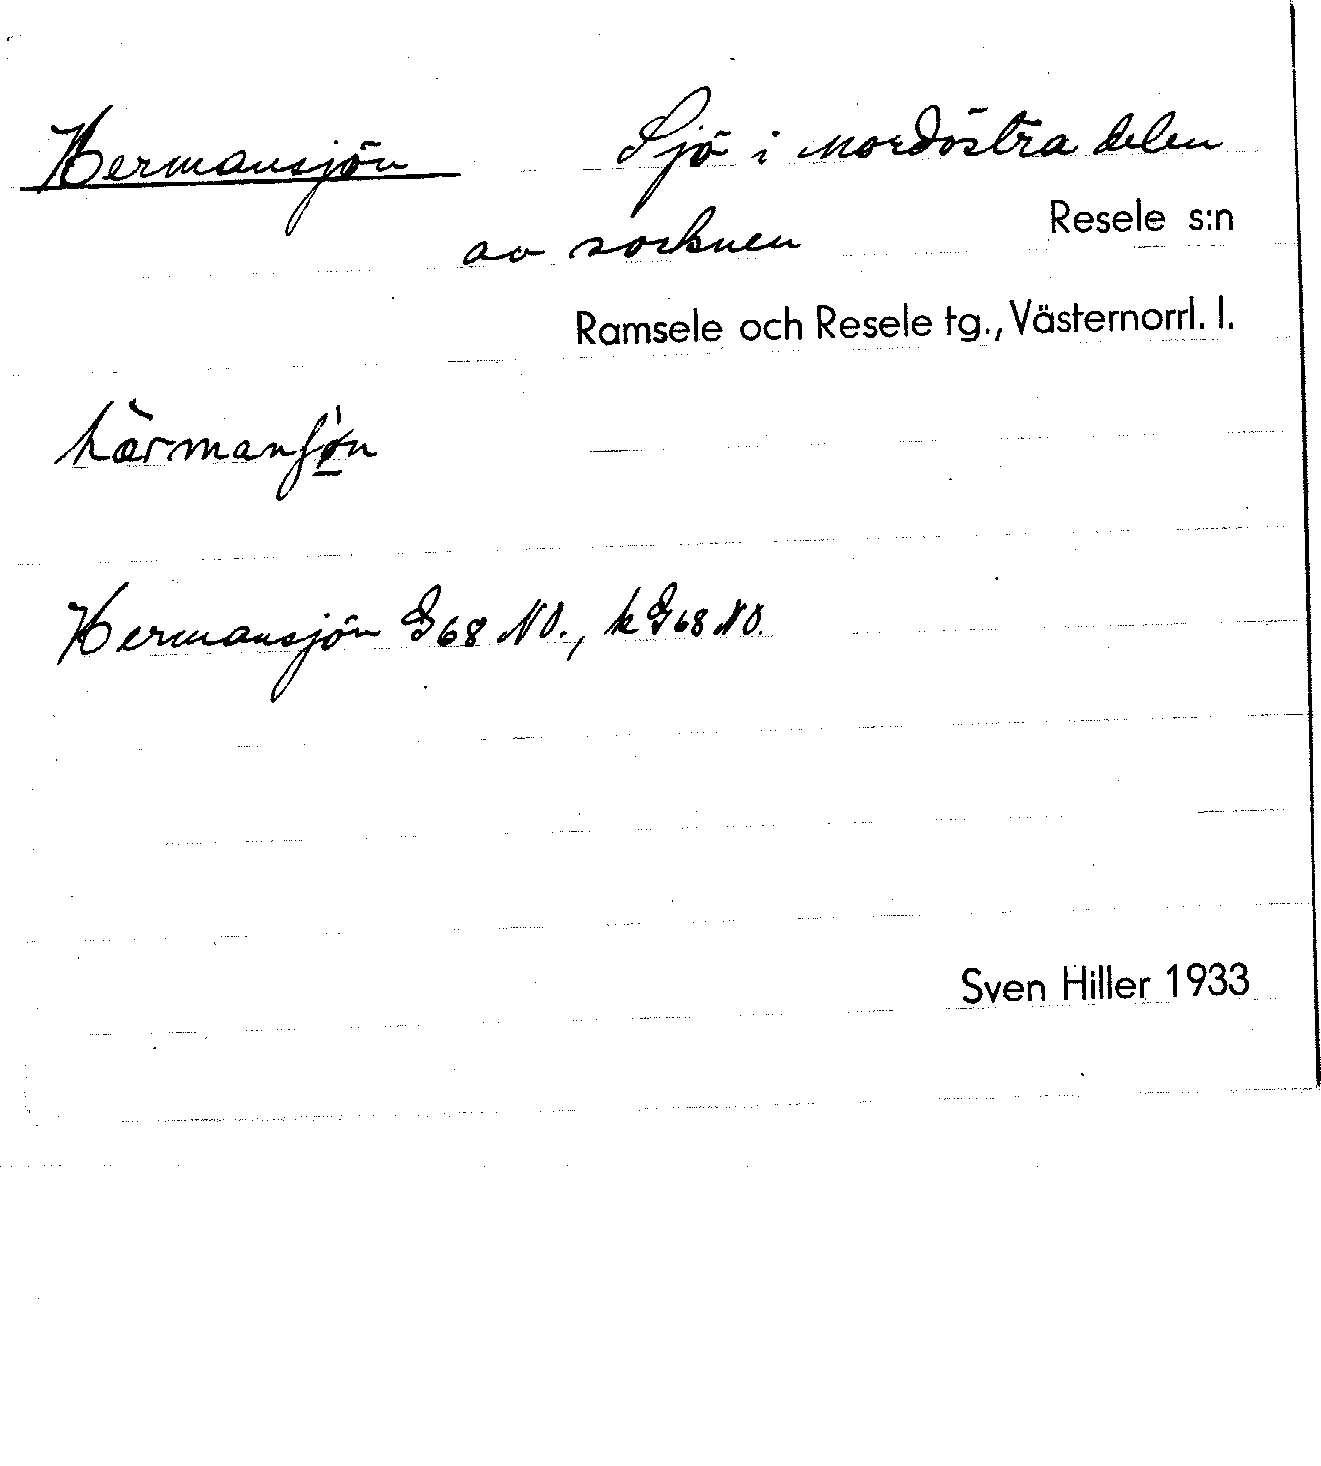 Hermansjön Sjö i nordöstra delen
av socknen Resele s:n
Ramsele och Resele tg., Västernorrl. l.
Hermansjön G68 NO., k G68 NO.
Sven Hiller 1933